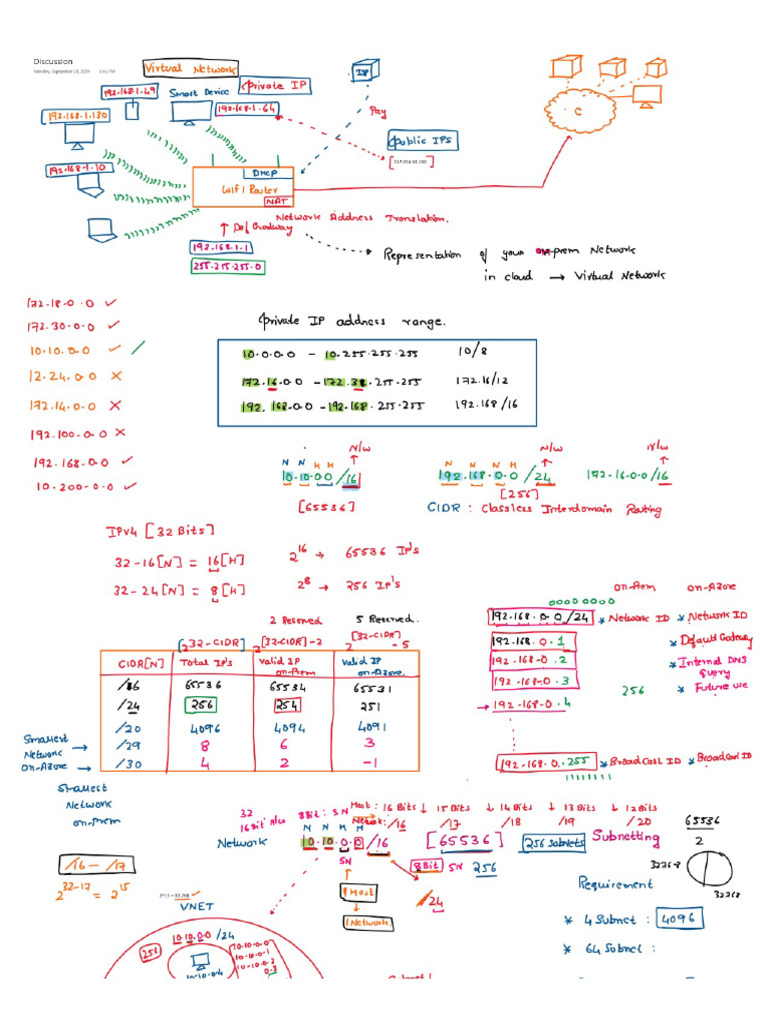 Discussion
Monday, September 23, 2024
Virtual Network
ISP
192.168.1.49
Smart Device
Private IP
192.168.1.130
192.168.1.64
Pay
C
Public IPs
192.168.1.10
DHCP
WIFI Router
NAT
Network Address Translation.
Def Gradway
192.168.1.1
255.255.255.0
Representation of your on-prem Network
in cloud → Virtual Network
172.18.0.0 ✓
172.30.0.0 ✓
10.10.0.0 ✓
12.24.0.0 ×
172.14.0.0 ×
192.100.0.0 ×
192.168.0.0 ✓
10.200.0.0 ✓
Private IP address range.
10.0.0.0 – 10.255.255.255 10/8
172.16.0.0 – 172.31.255.255 172.16/12
192.168.0.0 – 192.168.255.255 192.168/16
N/W N/W N/W
N N H H N N N H
10.10.0.0/16 192.168.0.0/24 172.16.0.0/16
[65536] [256]
CIDR : Classless Interdomain Routing
IPV4 [32 Bits]
32-16[N] = 16[H] 2^16 → 65536 IP's
32-24[N] = 8[H] 2^8 → 256 IP's
2 Reserved 5 Reserved.
2^(32-CIDR) 2^[32-CIDR]-2 2^[32-CIDR] -5
CIDR[N] Total IP's Valid IP on-Prem Valid IP on-Azure.
/16 65536 65534 65531
/24 256 254 251
/20 4096 4094 4091
/29 8 6 3
/30 4 2 -1
Smallest Network on-Azure
Smallest Network on-prem
on-Prem on-Azure
00000000
192.168.0.0/24 * Network ID * Network ID
192.168.0.1 * Default Gateway
192.168.0.2 * Internal DNS Query
192.168.0.3 256 * Future use
→ 192.168.0.4
192.168.0.255 * BroadCast ID * BroadCast ID
11111111
32
16Bit
8Bit: SN
Host: 16 Bits ↓ 15 Bits ↓ 14 Bits ↓ 13 Bits ↓ 12 Bits
/16 /17 /18 /19 /20
N N H H
Network 10.10.0.0/16 [65536] 256 Subnets Subnetting
SN
8Bit SN 256
65536
2
32768
32768
/16 – /17
2^(32-17) = 2^15
1 Host
1 Network
/24
Requirement
* 4 Subnet : 4096
* 64 Subnet :
VNET
10.10.0.0 /24
256
10.10.0.0
10.10.0.1
10.10.0.2
0.3
10.10.0.4